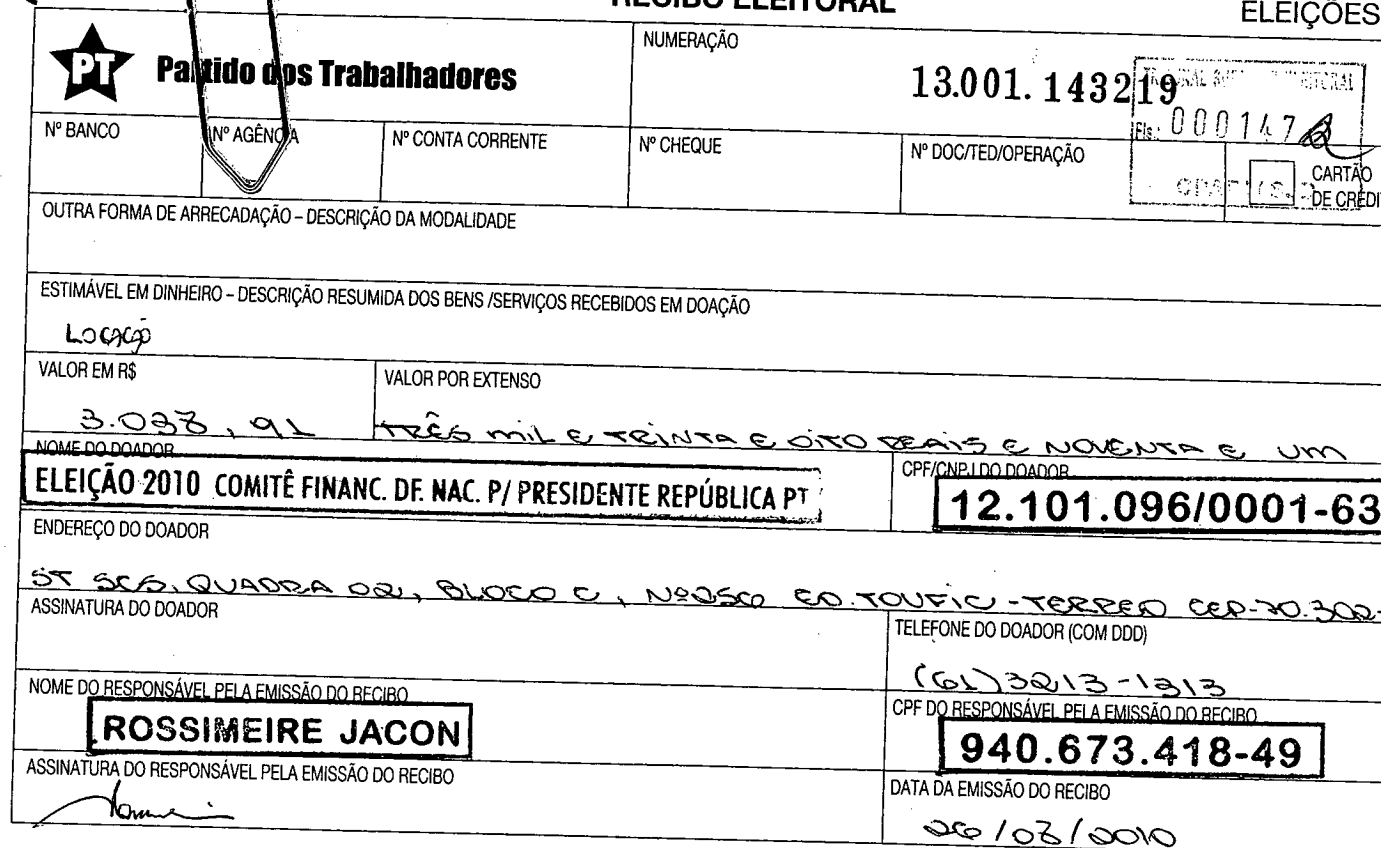 RECIBO ELEITORAL
ELEIÇÕES
PT Partido dos Trabalhadores
NUMERAÇÃO
13.001.143219
TRIBUNAL
Fls.: 000147
Nº BANCO
Nº AGÊNCIA
Nº CONTA CORRENTE
Nº CHEQUE
Nº DOC/TED/OPERAÇÃO
CARTÃO
DE CRÉDI
OUTRA FORMA DE ARRECADAÇÃO – DESCRIÇÃO DA MODALIDADE
ESTIMÁVEL EM DINHEIRO – DESCRIÇÃO RESUMIDA DOS BENS /SERVIÇOS RECEBIDOS EM DOAÇÃO
LOCAÇÃO
VALOR EM R$
VALOR POR EXTENSO
3.038,91
TRÊS MIL E TRINTA E OITO REAIS E NOVENTA E UM
NOME DO DOADOR
CPF/CNPJ DO DOADOR
ELEIÇÃO 2010 COMITÊ FINANC. DF. NAC. P/ PRESIDENTE REPÚBLICA PT
12.101.096/0001-63
ENDEREÇO DO DOADOR
ST SCS, QUADRA 02, BLOCO C, Nº256 ED. TOUFIC - TERREO CEP-70.302-
ASSINATURA DO DOADOR
TELEFONE DO DOADOR (COM DDD)
(61)3213-1313
NOME DO RESPONSÁVEL PELA EMISSÃO DO RECIBO
CPF DO RESPONSÁVEL PELA EMISSÃO DO RECIBO
ROSSIMEIRE JACON
940.673.418-49
ASSINATURA DO RESPONSÁVEL PELA EMISSÃO DO RECIBO
DATA DA EMISSÃO DO RECIBO
26/08/2010